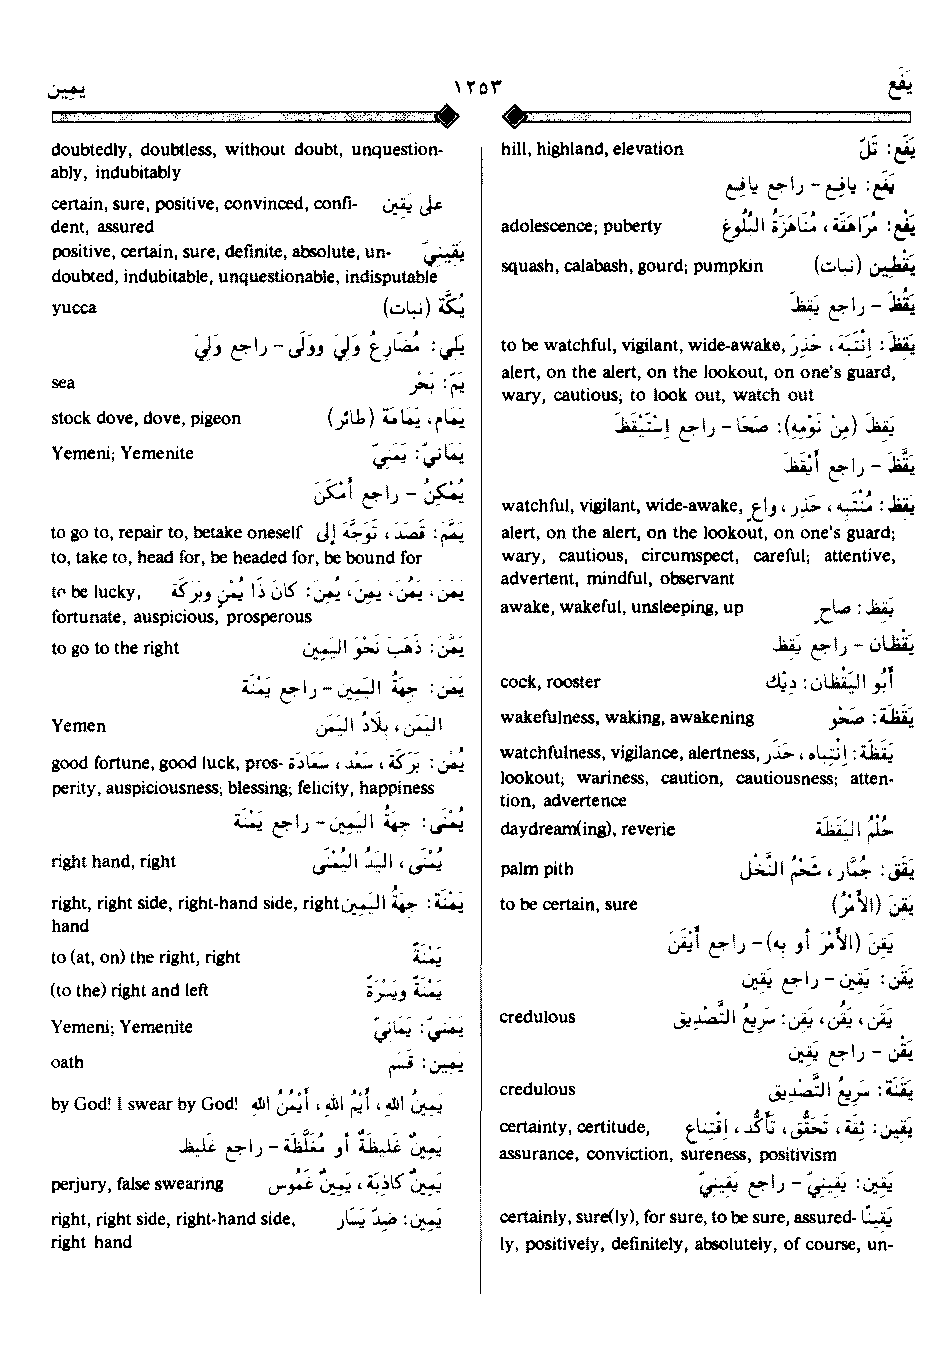 يَفَع
١٢٥٣
يمين
hill, highland, elevation يَفَع: تَلّ
يَفَع: يافِع - راجع يافِع
adolescence; puberty يَفْع: مُرَاهَقَة، مُنَاهَزَةُ البُلُوغ
squash, calabash, gourd; pumpkin يَقْطِين (نبات)
يَقُظَ - راجع يَقِظَ
to be watchful, vigilant, wide-awake, يَقِظَ: اِنْتَبَهَ، حَذِرَ
alert, on the alert, on the lookout, on one's guard,
wary, cautious; to look out, watch out
يَقِظَ (مِنْ نَوْمِهِ): صَحَا - راجع اِسْتَيْقَظَ
يَقَّظَ - راجع أَيْقَظَ
watchful, vigilant, wide-awake, يَقِظ: مُنْتَبِه، حَذِر، واعٍ
alert, on the alert, on the lookout, on one's guard;
wary, cautious, circumspect, careful; attentive,
advertent, mindful, observant
awake, wakeful, unsleeping, up يَقِظ: صاحٍ
يَقْظان - راجع يَقِظ
cock, rooster أَبُو اليَقْظان: دِيْك
wakefulness, waking, awakening يَقَظَة: صَحْو
watchfulness, vigilance, alertness, يَقَظَة: اِنْتِبَاه، حَذَر
lookout; wariness, caution, cautiousness; atten-
tion, advertence
daydream(ing), reverie حُلْمُ اليَقَظَة
palm pith يَقَق: جُمَّار، شَحْمُ النَّخْل
to be certain, sure يَقِنَ (الأَمْرُ)
يَقِنَ (الأَمْرَ أو بِهِ) - راجع أَيْقَنَ
يَقَن: يَقين - راجع يَقين
credulous يَقَن، يَقُن، يَقِن: سَرِيعُ التَّصْدِيق
يَقْن - راجع يَقِين
credulous يَقَنَة: سَرِيعُ التَّصْدِيق
certainty, certitude, يَقِين: ثِقَة، تَحَقُّق، تَأَكُّد، اِقْتِنَاع
assurance, conviction, sureness, positivism
يَقين: يَقينيّ - راجع يَقينيّ
certainly, sure(ly), for sure, to be sure, assured- يَقِيناً
ly, positively, definitely, absolutely, of course, un-
doubtedly, doubtless, without doubt, unquestion-
ably, indubitably
certain, sure, positive, convinced, confi- على يَقِين
dent, assured
positive, certain, sure, definite, absolute, un- يَقِينِيّ
doubted, indubitable, unquestionable, indisputable
yucca يُكَّة (نبات)
يَلِي: مُضَارِعُ وَلِيَ ووَلَى - راجع وَلِيَ
sea يَمّ: بَحْر
stock dove, dove, pigeon يَمَام، يَمَامَة (طائر)
Yemeni; Yemenite يَمَانيّ: يَمَنِيّ
يُمْكِنُ - راجع أَمْكَنَ
to go to, repair to, betake oneself يَمَّمَ: قَصَدَ، تَوَجَّهَ إلى
to, take to, head for, be headed for, be bound for
to be lucky, يَمَنَ، يَمُنَ، يَمِنَ، يُمِنَ: كَانَ ذَا يُمْنٍ وبَرَكَة
fortunate, auspicious, prosperous
to go to the right يَمَّنَ: ذَهَبَ نَحْوَ اليَمِين
يَمَن: جِهَةُ اليَمِين - راجع يَمْنَة
Yemen اليَمَن، بِلَادُ اليَمَن
good fortune, good luck, pros- يُمْن: بَرَكَة، سَعْد، سَعَادَة
perity, auspiciousness; blessing; felicity, happiness
يُمْنَى: جِهَةُ اليَمِين - راجع يَمْنَة
right hand, right يُمْنَى، اليَدُ اليُمْنَى
right, right side, right-hand side, right يَمْنَة: جِهَةُ اليَمِين
hand
to (at, on) the right, right يَمْنَةً
(to the) right and left يَمْنَةً ويَسْرَةً
Yemeni; Yemenite يَمَنيّ: يَمَانيّ
oath يَمِين: قَسَم
by God! I swear by God! يَمِينُ اللهِ، أَيْمُ اللهِ، أَيْمُنُ اللهِ
يَمِينٌ غَلِيظَةٌ أو مُغَلَّظَة - راجع غَلِيظ
perjury, false swearing يَمِينٌ كَاذِبَة، يَمِينٌ غَمُوس
right, right side, right-hand side, يَمِين: ضِدّ يَسَار
right hand